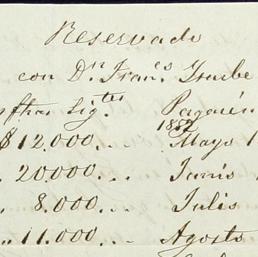 Reservado
con Dn. Frances Iturbe
Sigtes. Pagarés
1852
$12,000... Mayo 1
" 20000... Junio
" 8,000... Julio
" 11,000... Agosto